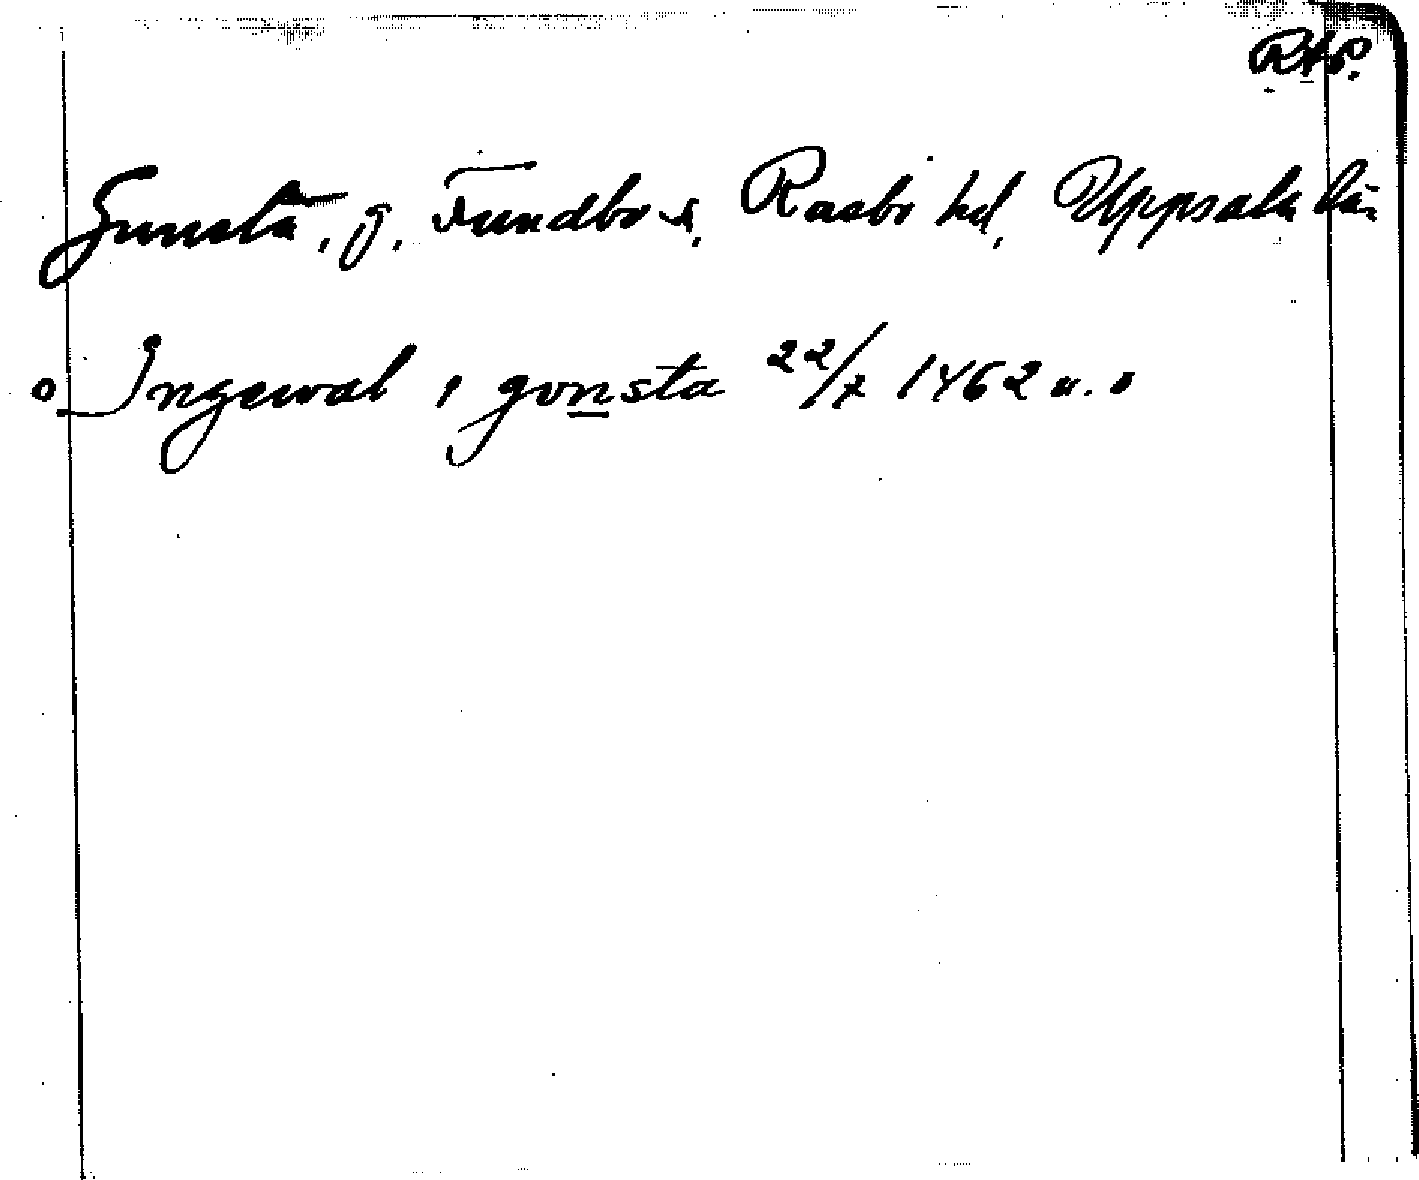 RAP.
Gunsta, g. Fundbo s, Rasbo hd, Uppsala län
Ingewal i gonsta 22/7 1462 u. o